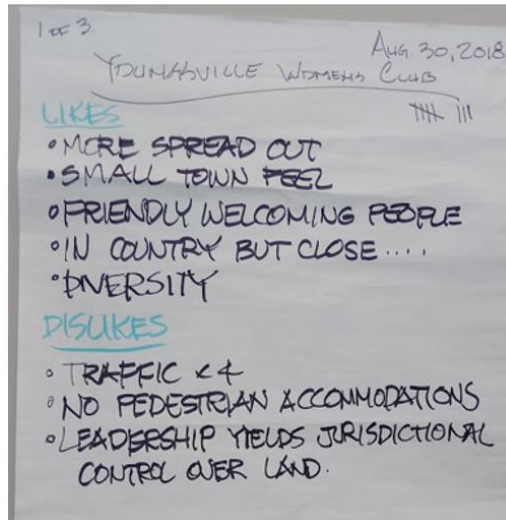 1 OF 3.
AUG. 30, 2018
YOUNGSVILLE WOMENS CLUB
LIKES
• MORE SPREAD OUT
• SMALL TOWN FEEL
• FRIENDLY WELCOMING PEOPLE
• IN COUNTRY BUT CLOSE ....
• DIVERSITY
DISLIKES
• TRAFFIC x 4
• NO PEDESTRIAN ACCOMMODATIONS
• LEADERSHIP YIELDS JURISDICTIONAL
CONTROL OVER LAND.